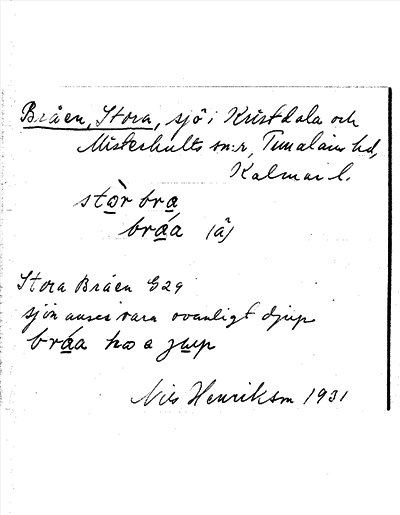 Bråen, Stora, sjö i Kristdala och
Misterhults sn:r, Tunaläns hd,
Kalmar l.
stòr bra
bráa (å)
Stora Bråen G29
sjön anses vara ovanligt djup
bráa ha a jup
Nils Henrikson 1931